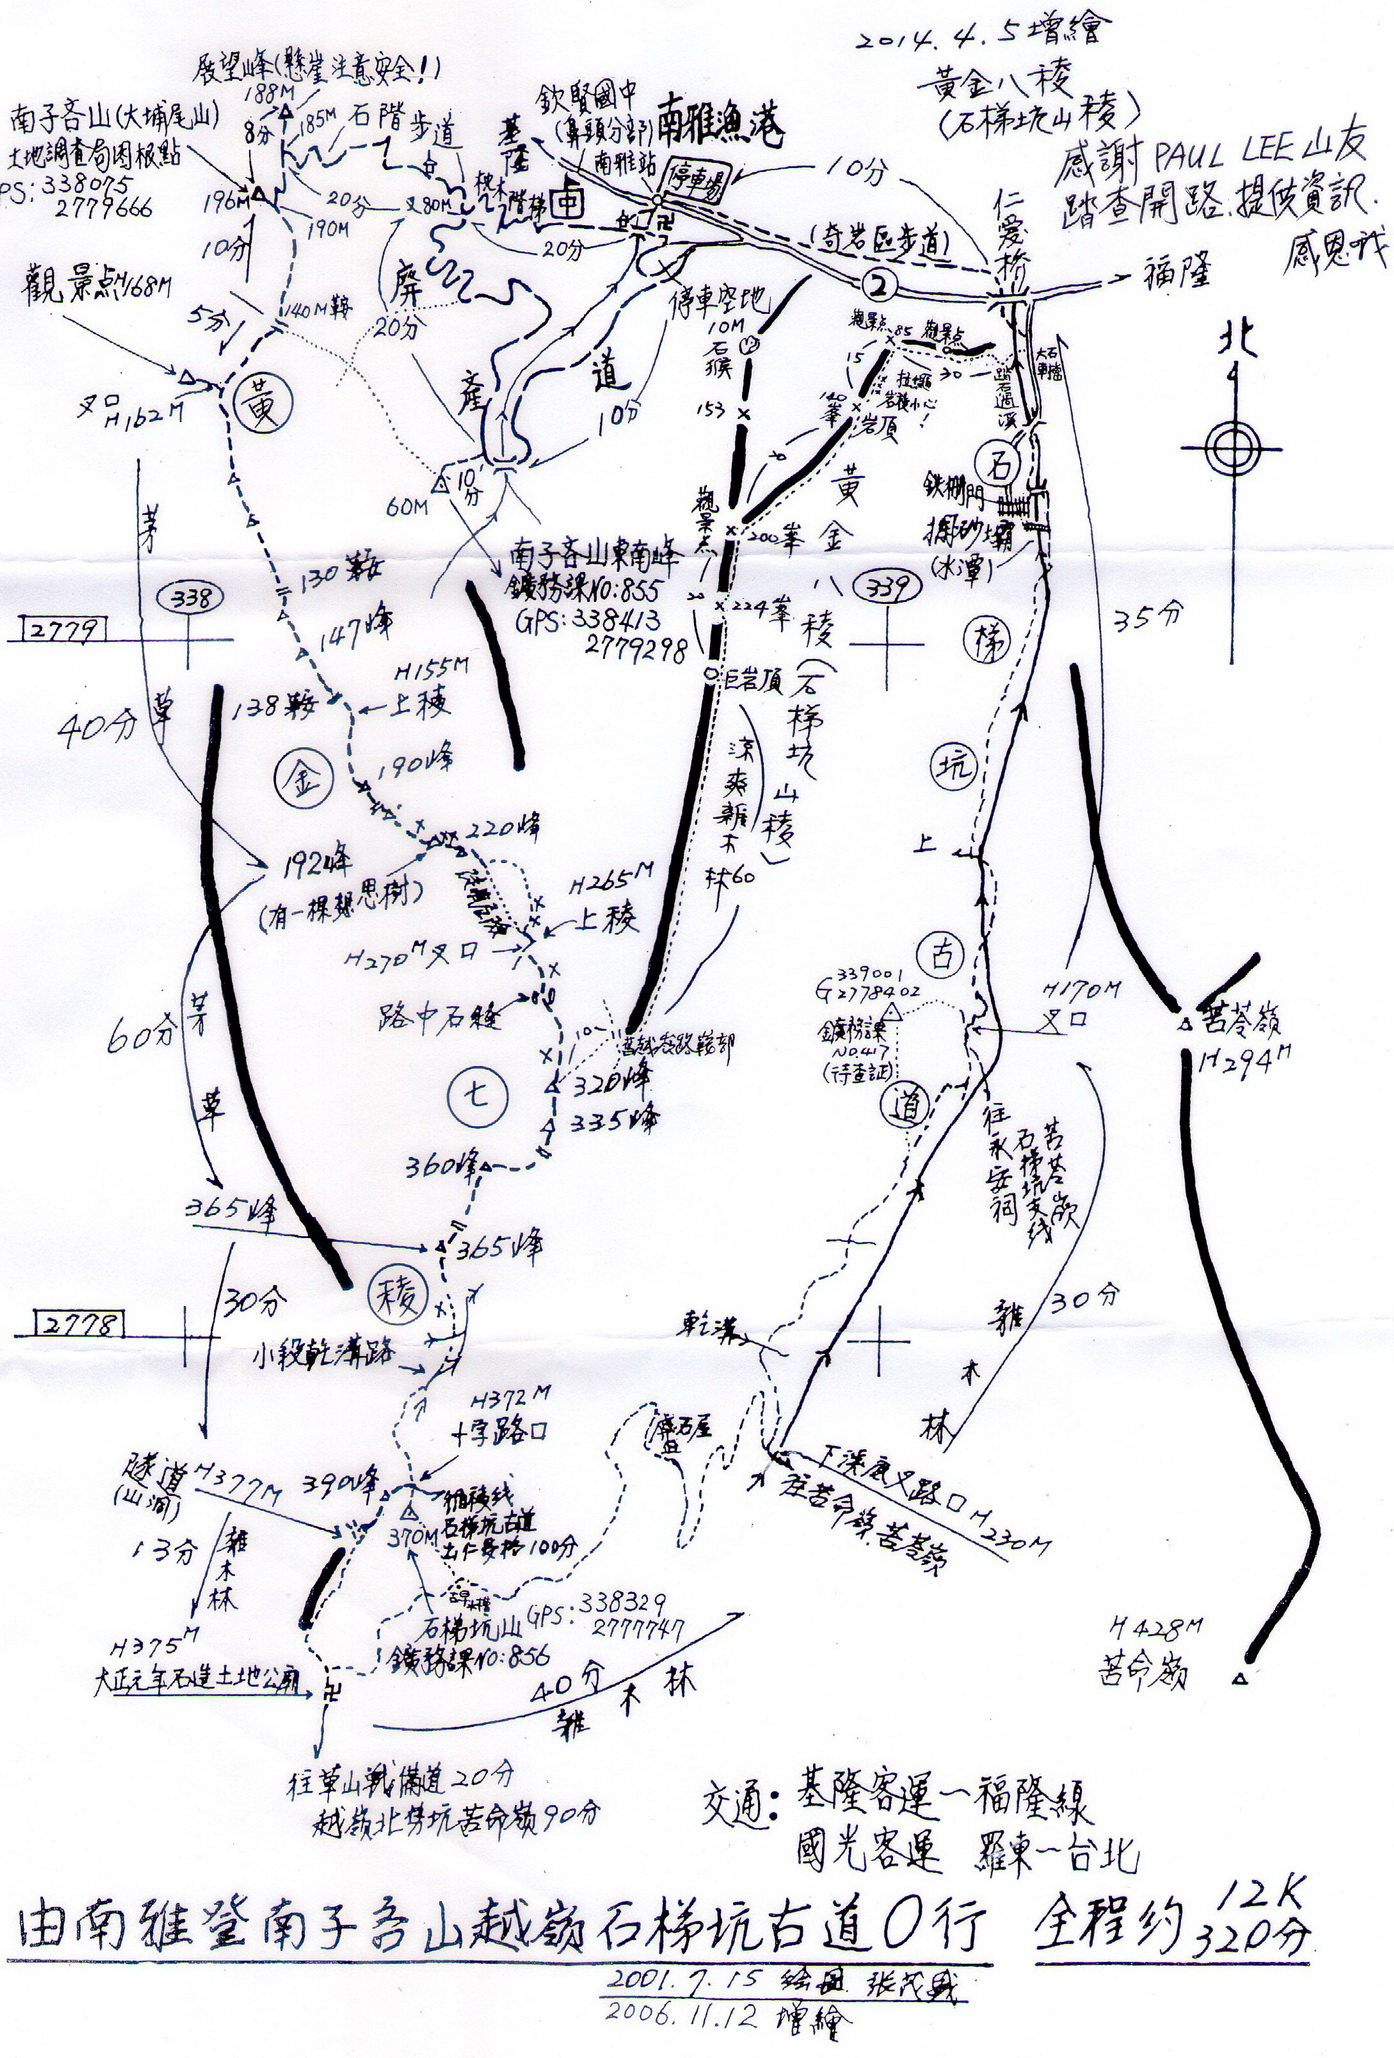 2014.4.5增繪
黃金八稜
(石梯坑山稜)
感謝 PAUL LEE 山友
踏查開路.提供資訊.
感恩哦
展望峰(懸崖注意安全!)
188M
8分
185M
石階步道
南子吝山(大埔尾山)
土地調查局圖根點
PS:338075
2779666
196M
190M
10分
20分
叉80M
枕木階梯
20分
基隆
欽賢國中
(鼻頭分部)
南雅站
中
南雅漁港
停車場
10分
(奇岩區步道)
仁愛橋
福隆
2
觀景点H168M
5分
140M鞍
叉口
H162M
黃
20分
產
道
停車空地
10M
石猴
10分
60M
10分
153
觀景点
85
觀景点
15
30
140峯
岩頂
踏石過溪
大石車擋
石
鉄柵門
攔砂壩
(水潭)
35分
北
黃金八稜(石梯坑山稜)
觀景点
200峯
20
224峯
巨岩頂
涼爽雜木林60
南子吝山東南峰
鑛務課NO:855
GPS:338413
2779298
338
339
2779
茅
草
40分
130鞍
147峰
H155M
上稜
138鞍
190峰
金
192峰
(有一棵想思樹)
220峰
H265M
上稜
H270M叉口
路中石縫
七
320峰
335峰
360峰
365峰
365峰
60分
茅
草
梯
坑
上
古
339001
G2778402
鑛務課
NO.417
(待查証)
道
H170M
叉口
苦苓嶺
H294M
往永安祠
石梯坑支线
苦苓嶺
30分
雜
木
林
2778
30分
稜
小段乾溝路
乾溝
H372M
十字路口
石屋
隧道
(山洞)
H377M
390峰
370M
石梯坑古道
出仁愛橋100分
下溪底叉路口H230M
往苦命嶺.苦苓嶺
13分
雜木林
石梯坑山
GPS:338329
2777747
鑛務課NO:856
H375M
大正元年石造土地公廟
40分
雜木林
H428M
苦命嶺
往草山戰備道20分
越嶺北勢坑苦命嶺90分
交通:基隆客運—福隆線
國光客運 羅東—台北
由南雅登南子吝山越嶺石梯坑古道O行 全程約 12K
320分
2001.7.15 绘图 張茂盛
2006.11.12 增繪